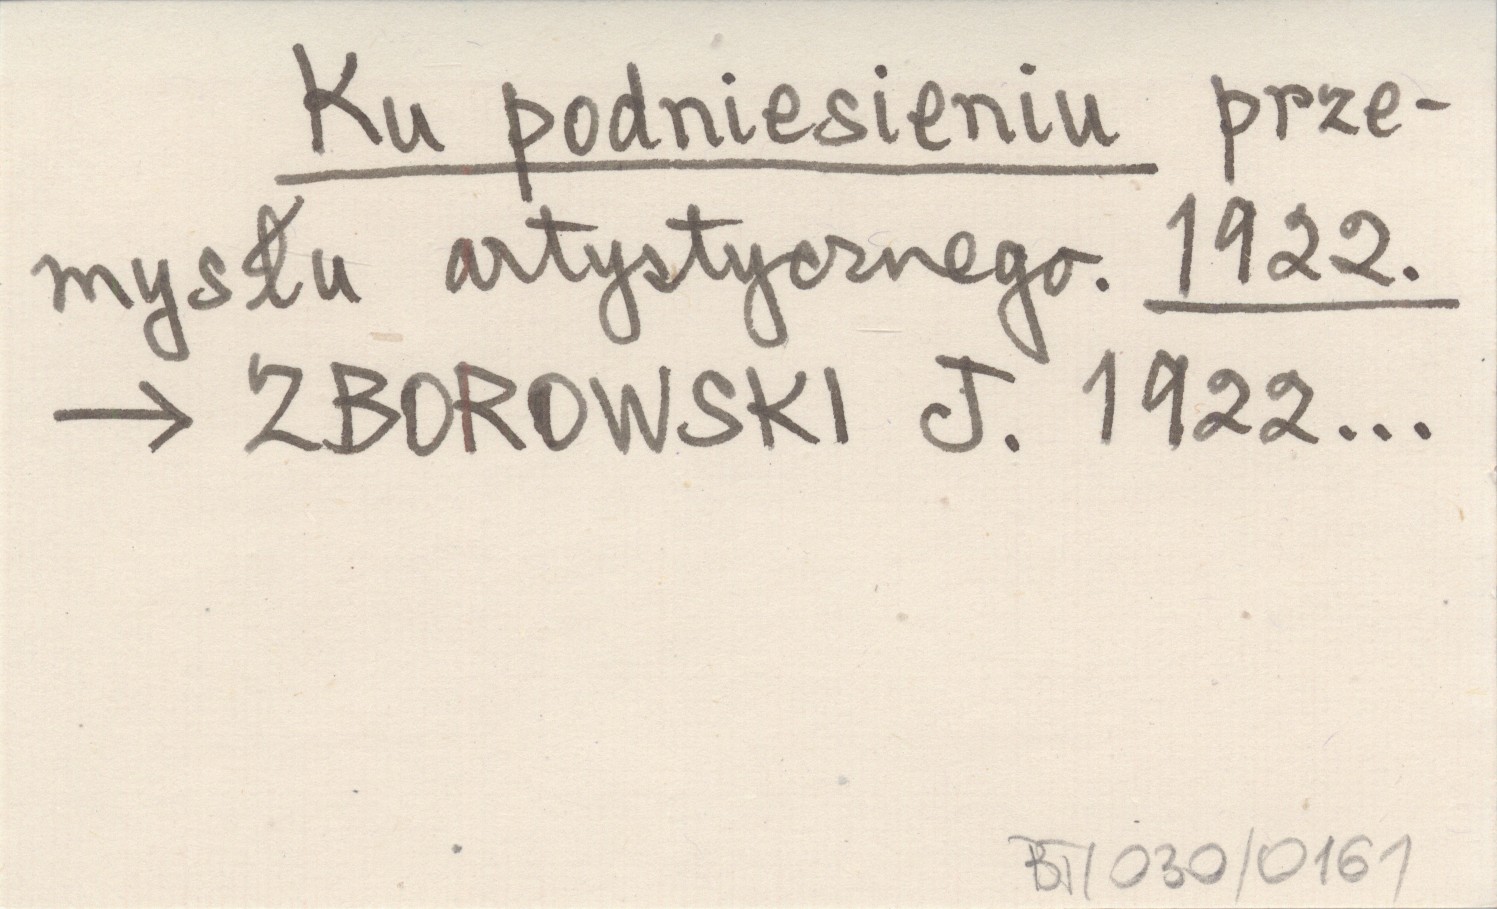 Ku podniesieniu prze-
mysłu artystycznego. 1922.
→ ZBOROWSKI J. 1922...
BT/030/0161